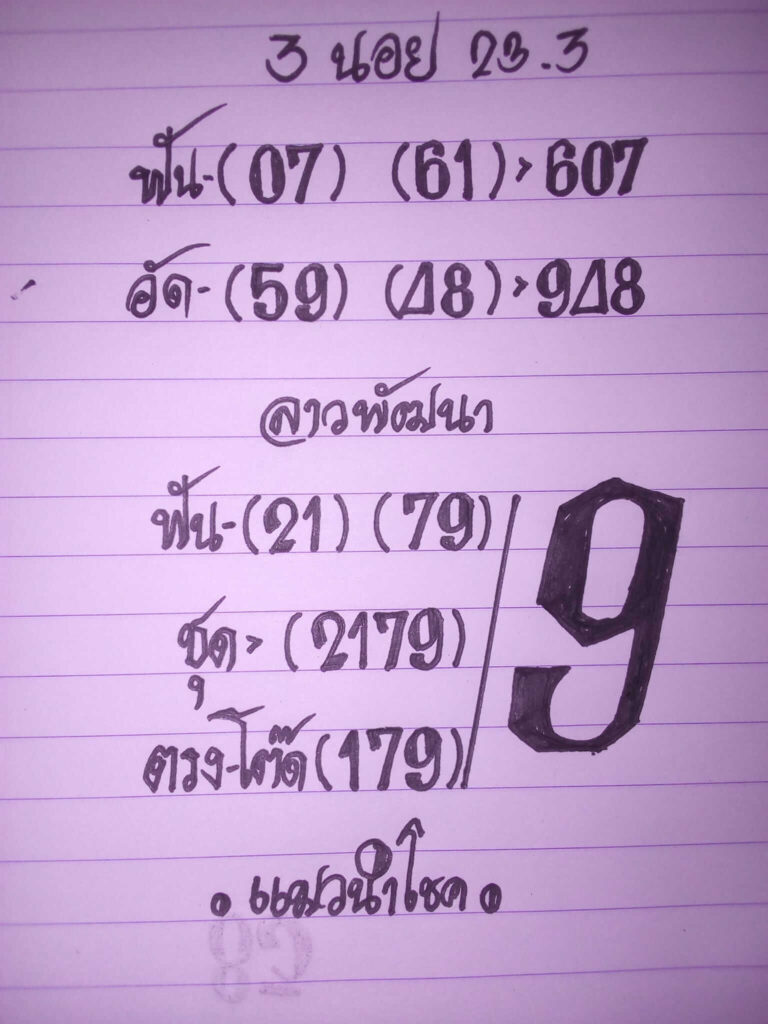 3 นอย 23.3
ฟัน-(07) (61)>607
อัด-(59) (48)>948
ลาวพัฒนา
ฟัน-(21) (79)
9
ชุด> (2179)
ตรง-โต๊ด(179)
• แมวนำโชค •